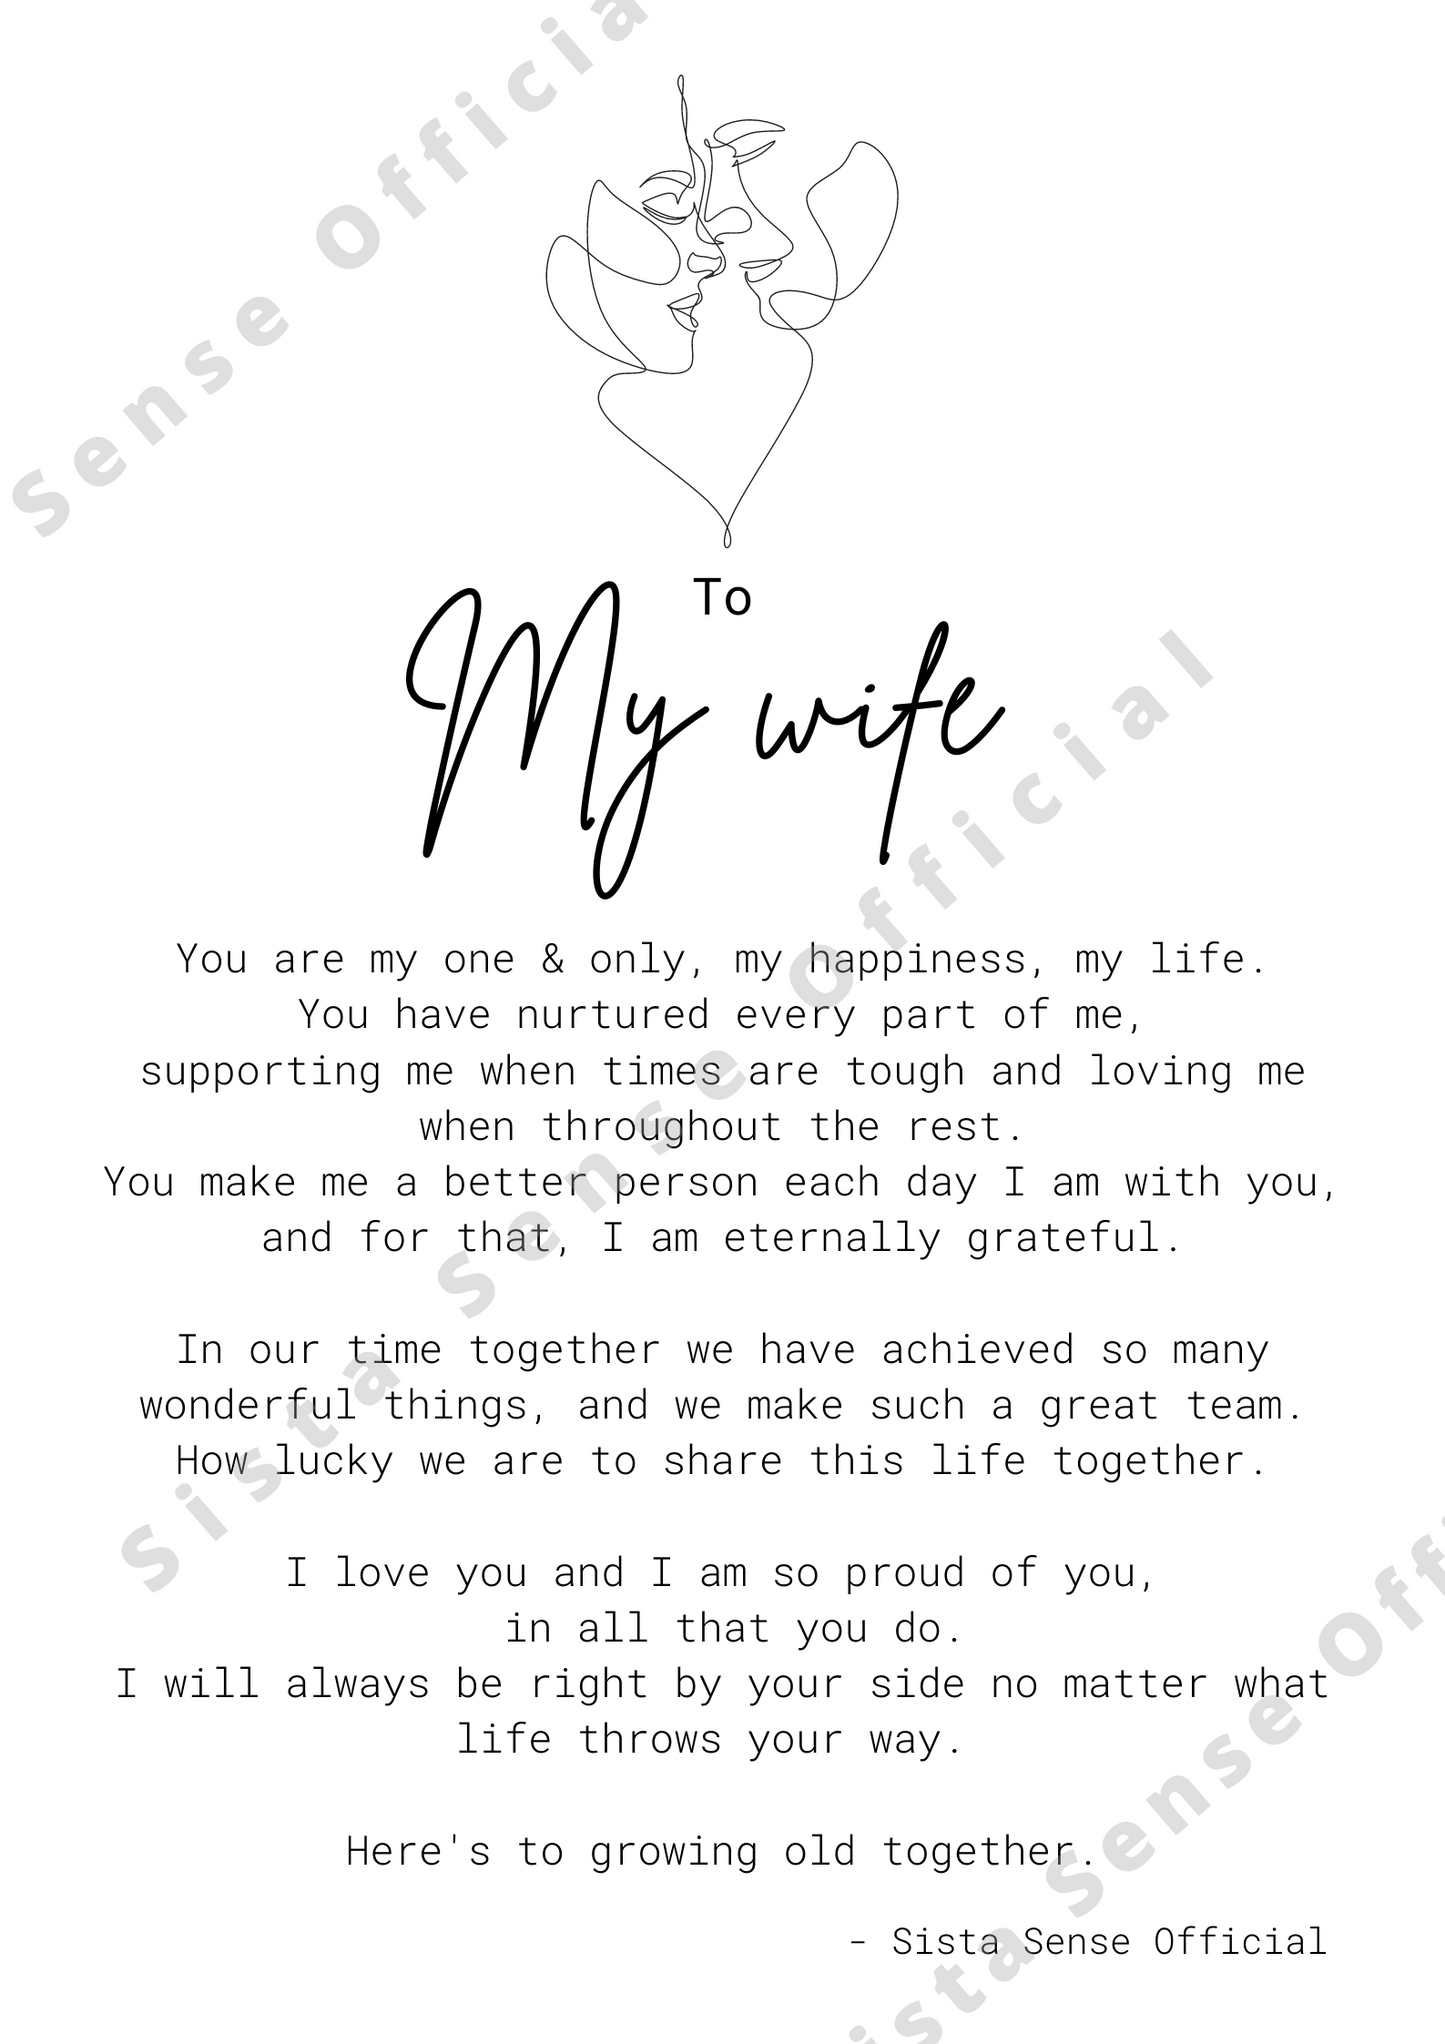 To
My wife
You are my one & only, my happiness, my life.
You have nurtured every part of me,
supporting me when times are tough and loving me
when throughout the rest.
You make me a better person each day I am with you,
and for that, I am eternally grateful.
In our time together we have achieved so many
wonderful things, and we make such a great team.
How lucky we are to share this life together.
I love you and I am so proud of you,
in all that you do.
I will always be right by your side no matter what
life throws your way.
Here's to growing old together.
- Sista Sense Official
Sense Officia
Sista Sense Official
ista Sense Off